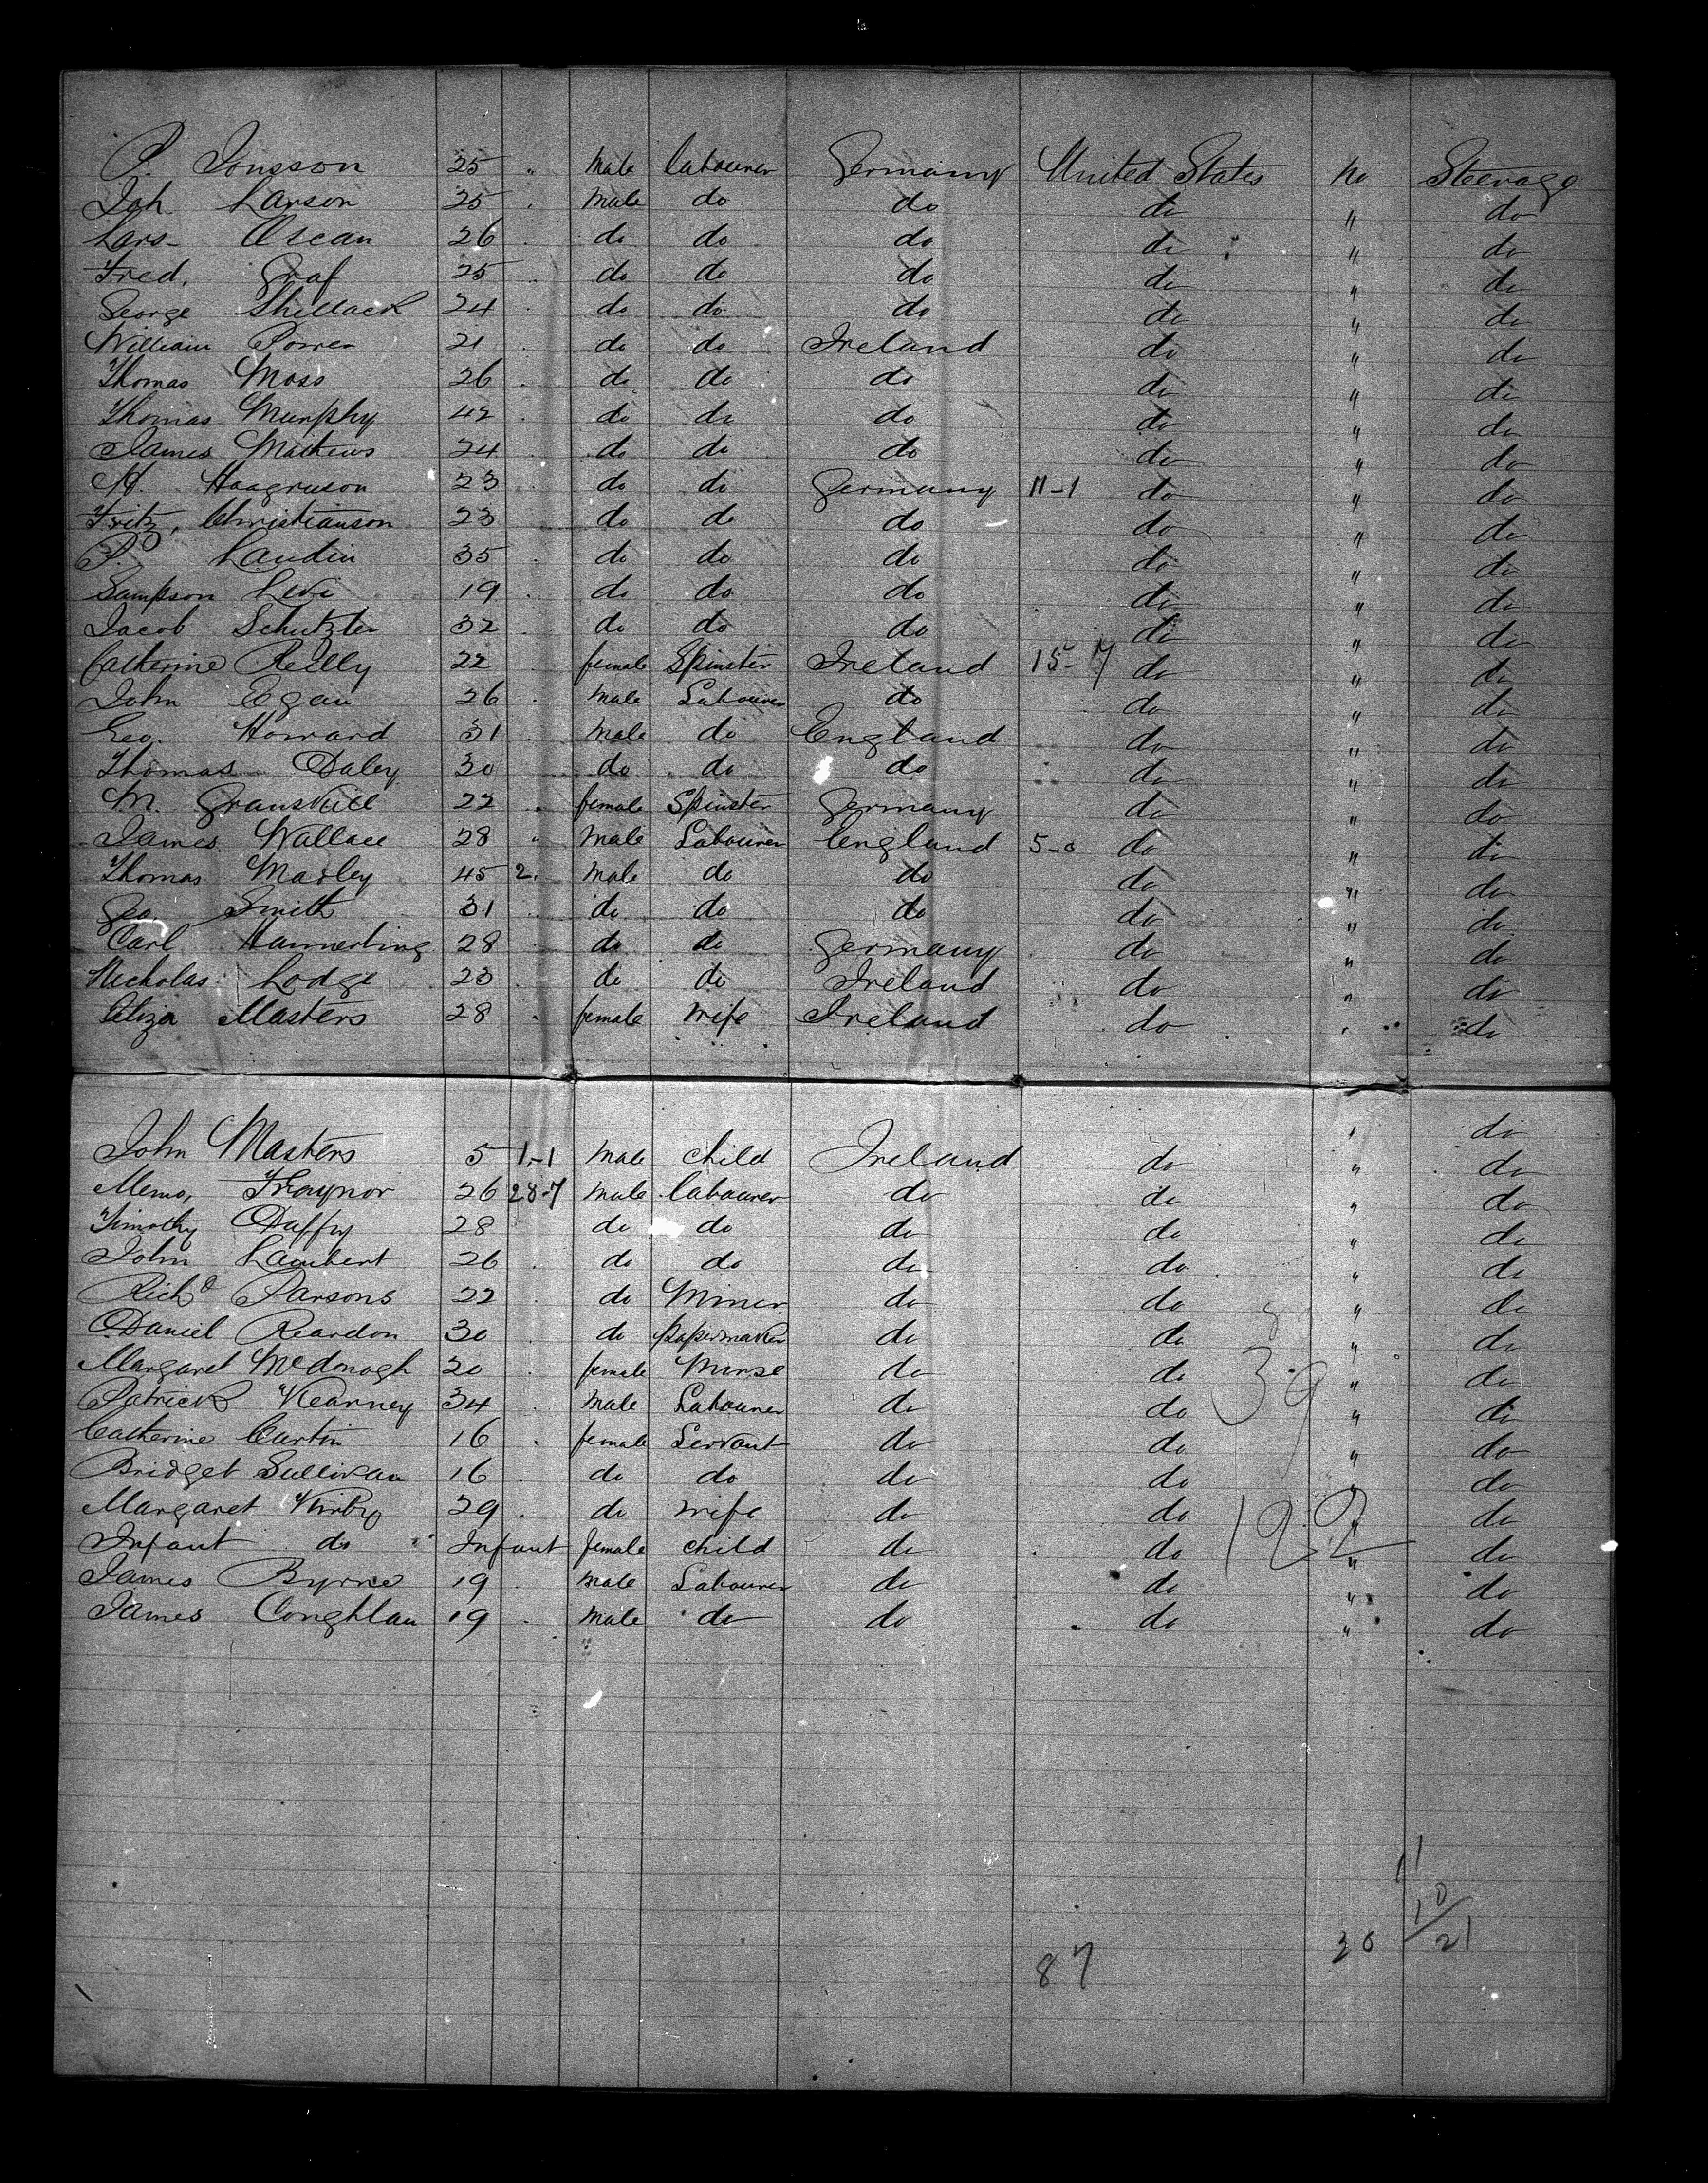 P. Jonsson 25 " Male Labourer Germany United States no Steerage
Joh Larson 25 . Male do do do " do
Lars Oscan 26 . do do do do " do
Fred. Graf 25 " do do do do " do
George Shellack 24 . do do do do " do
William Power 21 . do do Ireland do " do
Thomas Moss 26 . do do do do " do
Thomas Murphy 42 . do do do do " do
James Mathews 24 . do do do do " do
Haagruson 23 . do do Germany 11-1 do " do
Fritz, Christianson 23 . do do do do " do
P. Landin 35 . do do do do " do
Sampson Levi 19 . do do do do " do
Jacob Schutzler 32 . do do do do " do
Catherine Reilly 22 female Spinster Ireland 15-7 do " do
John Egan 26 . Male Labourer do do " do
Geo. Howard 31 . Male do England do " do
Thomas Daley 30 do do do do " do
M. 22 " female Spinster Germany do " do
James Wallace 28 " Male Labourer England 5-0 do " do
Thomas Marley 45 2. Male do do do " do
Geo Smith 31 do do do do " do
Carl Hannerling 28 do do Germany do " do
Nicholas Lodge 23 . do do Ireland do " do
Eliza Masters 28 . female Wife Ireland do " do
" do
John Masters 5 1-1 Male Child Ireland do " do
26 28-7 Male Labourer do do " do
Timothy Duffy 28 do do do do " do
John Lambert 26 . do do do do " do
Richd Parsons 22 . do Miner do do " do
Daniel Reardon 30 . do papermaker do do " do
Margaret McDonogh 20 . female Nurse do do 39 " do
Patrick Kearney 34 . Male Labourer do do " do
Catherine Curtin 16 . female Servant do do " do
Bridget Sullivan 16 . do do do do " do
Margaret Kirby 29 . do Wife do do 122 " do
Infant do Infant female child do do " do
James Byrne 19 . Male Labourer do do " do
James Coughlan 19 . Male do do do " do
11
10
87 30 21